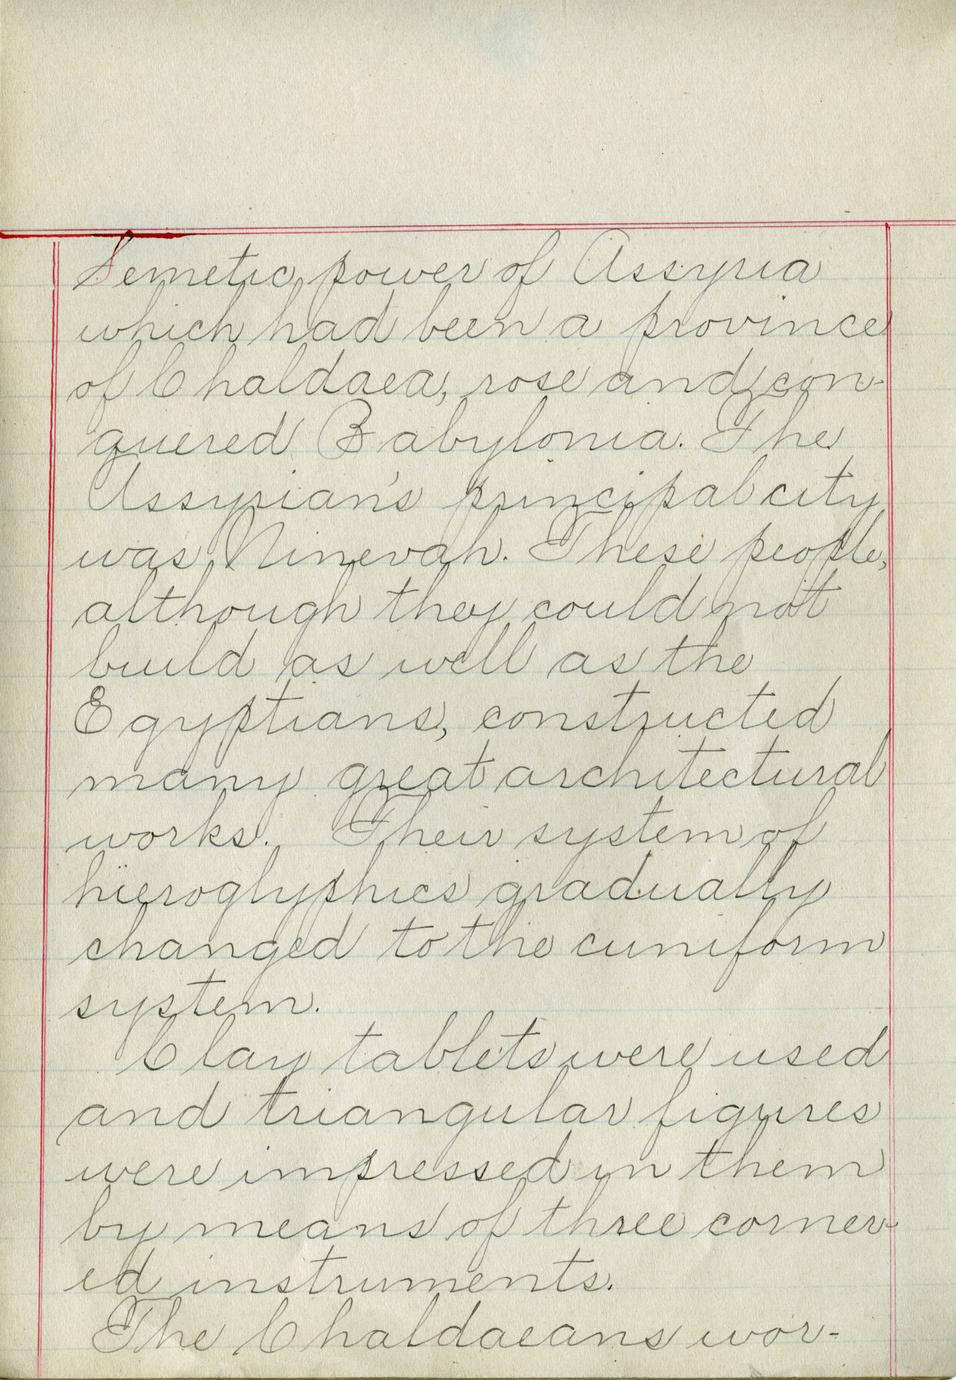 Semetic power of Assyria
which had been a province
of Chaldaea, rose and con-
quered Babylonia. The
Assyrian's principal city
was Ninevah. These people,
although they could not
build as well as the
Egyptians, constructed
many great architectural
works. Their system of
hieroglyphics gradually
changed to the cuniform
system.
Clay tablets were used
and triangular figures
were impressed in them
by means of three corner-
ed instruments.
The Chaldaeans wor-